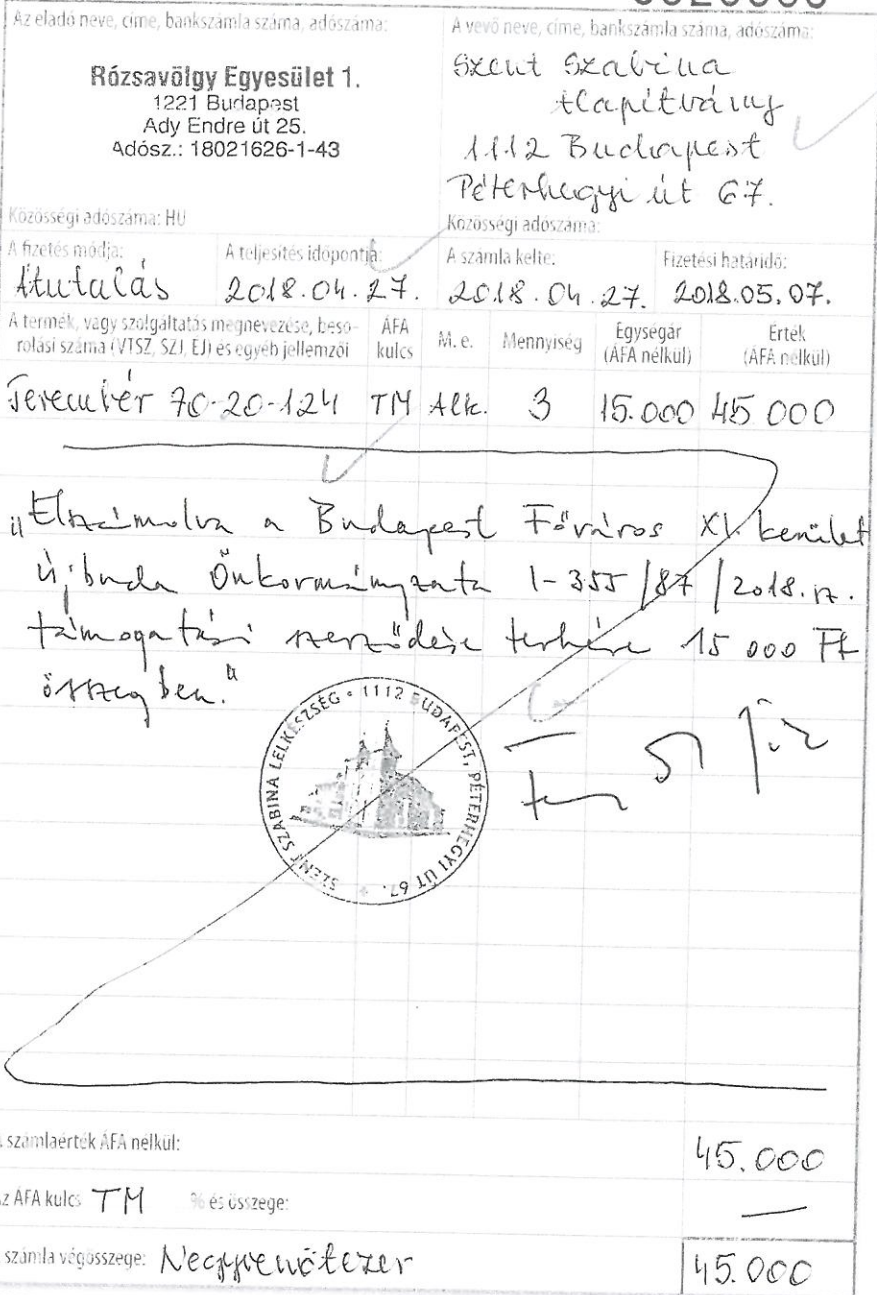 Az eladó neve, címe, bankszámla száma, adószáma:
Rózsavölgy Egyesület 1.
1221 Budapest
Ady Endre út 25.
Adósz.: 18021626-1-43
Közösségi adószáma: HU
A vevő neve, címe, bankszámla száma, adószáma:
Szent Szabina
Alapítvány
1112 Budapest
Péterhegyi út 67.
Közösségi adószáma:
A fizetés módja: A teljesítés időpontja: A számla kelte: Fizetési határidő:
Átutalás 2018.04.27. 2018.04.27. 2018.05.07.
A termék, vagy szolgáltatás megnevezése, beso-
rolási száma (VTSZ, SZJ, EJ) és egyéb jellemzői
ÁFA
kulcs
M. e.
Mennyiség
Egységár
(ÁFA nélkül)
Érték
(ÁFA nélkül)
Terembér 70-20-124 TM Alk. 3 15.000 45 000
„Elszámolva a Budapest Főváros XI. kerület
Újbuda Önkormányzata 1-355/87/2018. sz.
támogatási szerződése terhére 15 000 Ft
összegben."
SZENT SZABINA LELKÉSZSÉG * 1112 BUDAPEST, PÉTERHEGYI ÚT 67. *
számlaérték ÁFA nélkül: 45.000
ÁFA kulcs TM % és összege: —
számla végösszege: Negyvenötezer 45.000